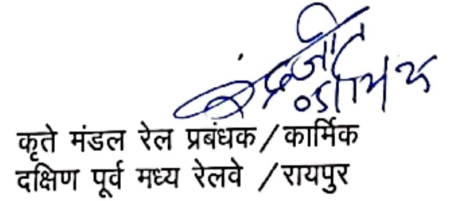 कृते मंडल रेल प्रबंधक/कार्मिक
दक्षिण पूर्व मध्य रेलवे /रायपुर